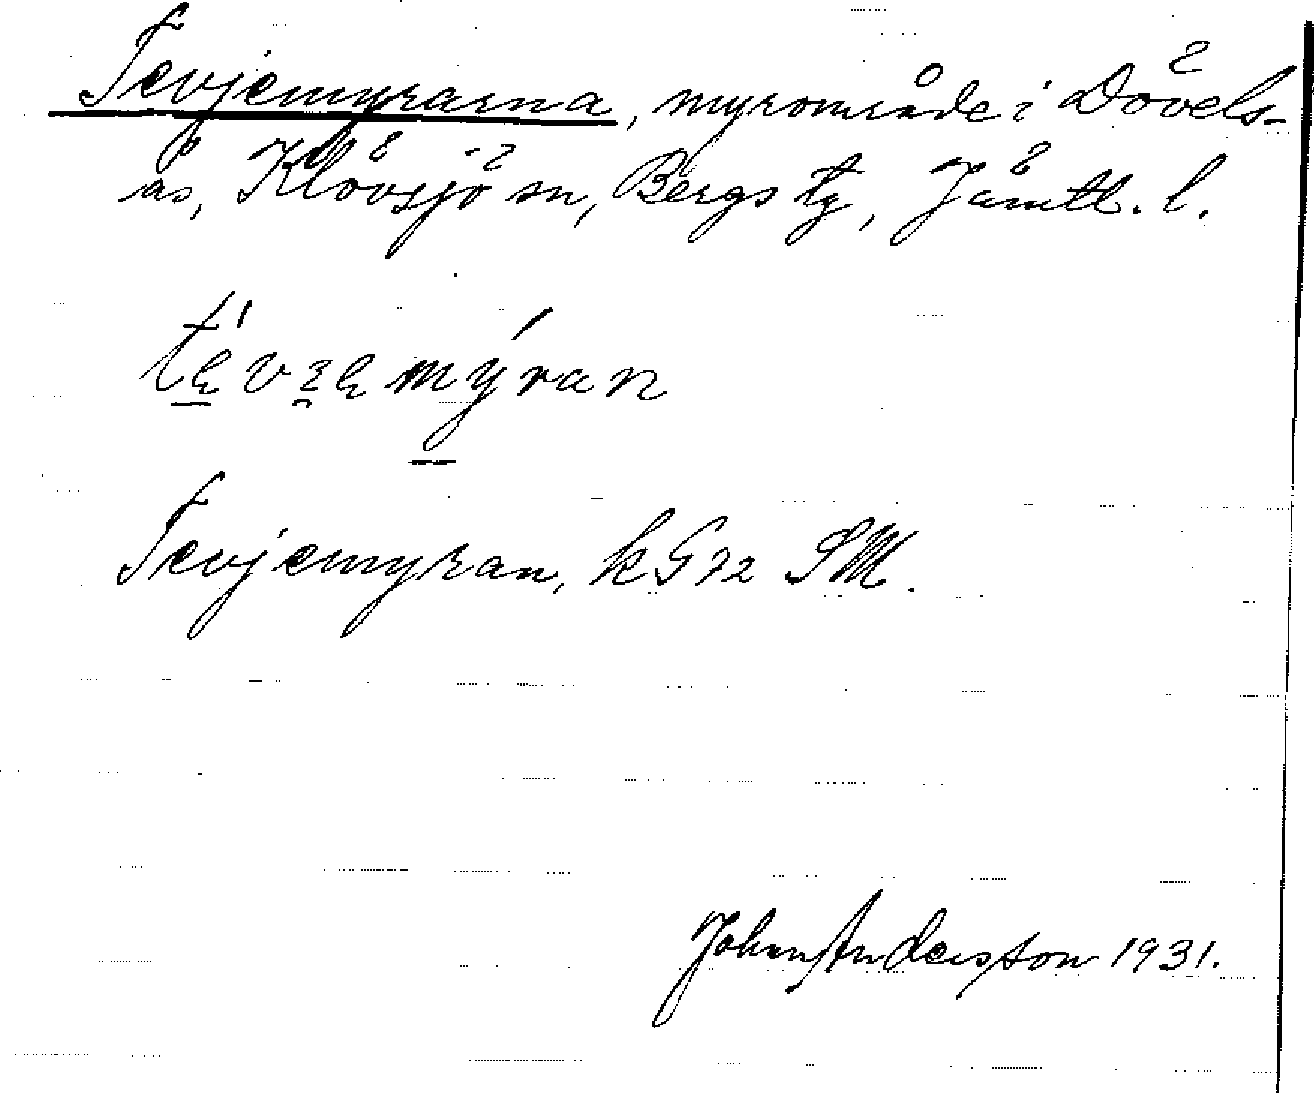 Tevjemyrarna, myrområde i Dövels-
ås, Klövsjö sn, Bergs tg, Jämtl. l.
Tevjemyran, k G 72 SM.
John Andersson 1931.